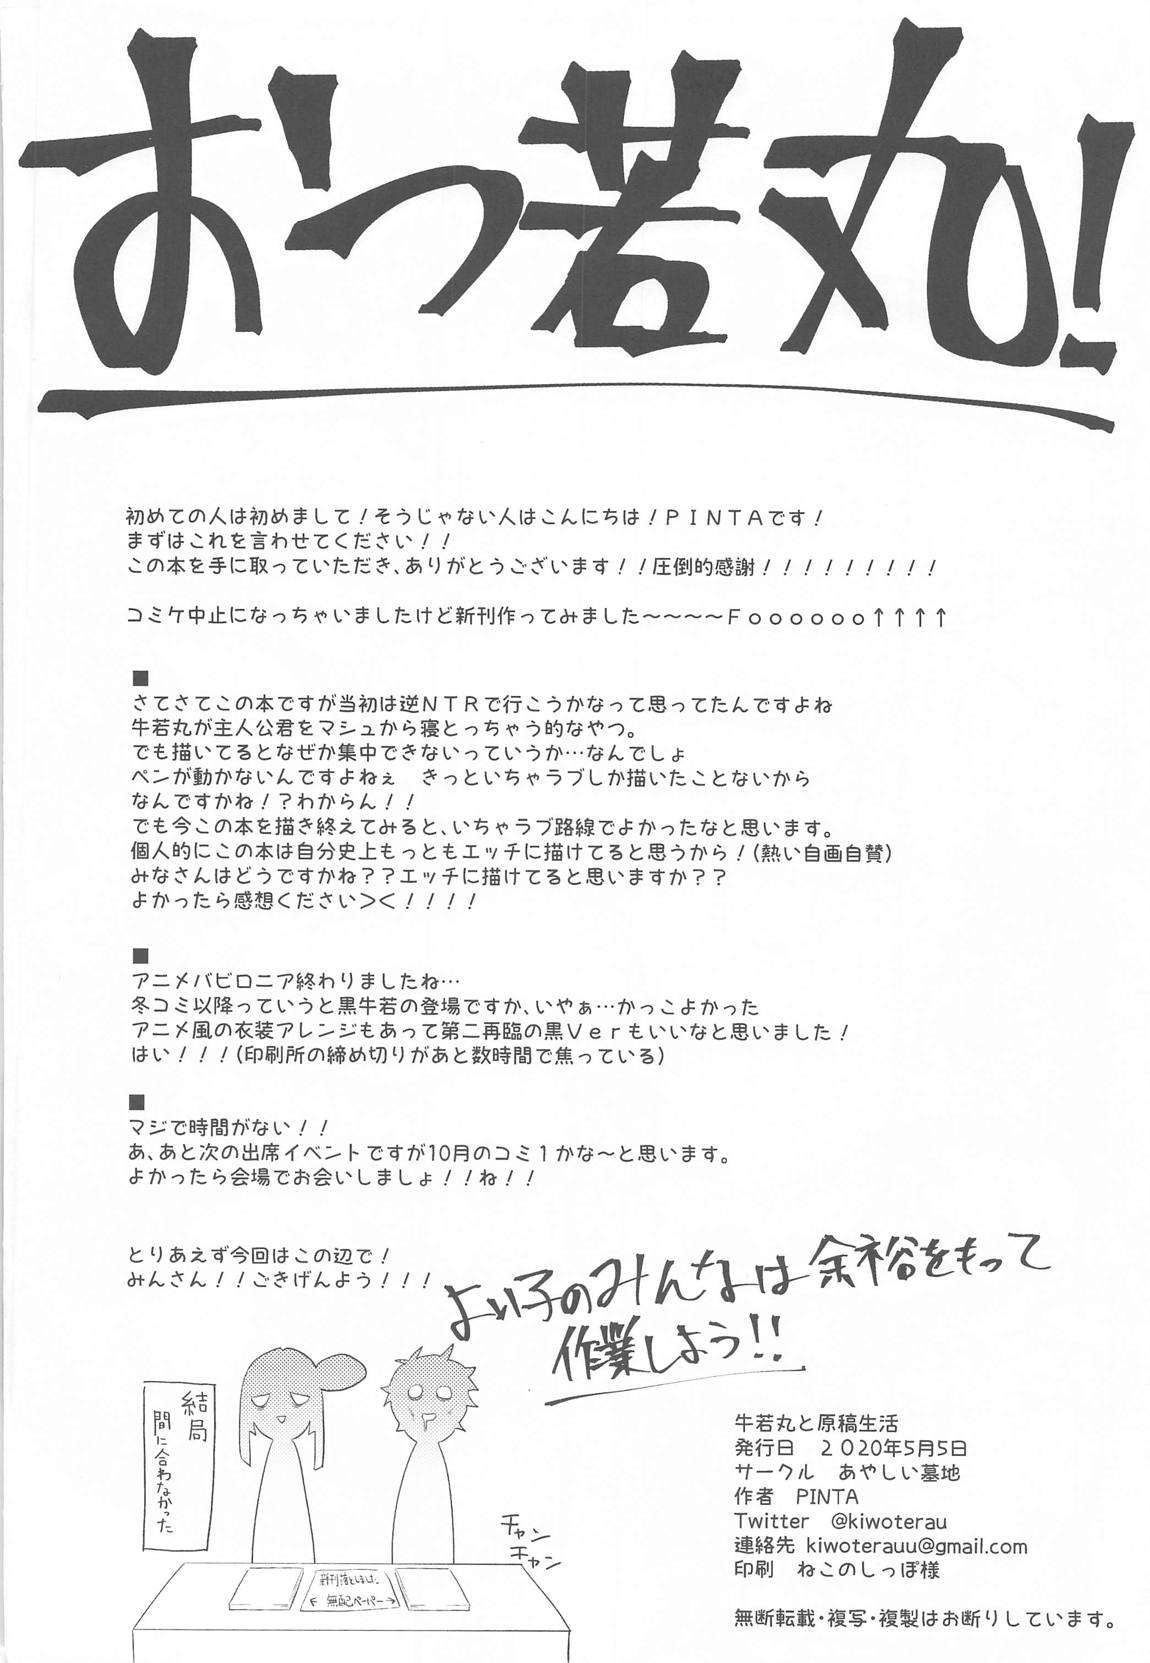 おつ若丸!
初めての人は初めまして！そうじゃない人はこんにちは！ＰＩＮＴＡです！
まずはこれを言わせてください！！
この本を手に取っていただき、ありがとうございます！！圧倒的感謝！！！！！！！！！
コミケ中止になっちゃいましたけど新刊作ってみました～～～～Ｆｏｏｏｏｏｏ↑↑↑↑
■
さてさてこの本ですが当初は逆ＮＴＲで行こうかなって思ってたんですよね
牛若丸が主人公君をマシュから寝とっちゃう的なやつ。
でも描いてるとなぜか集中できないっていうか…なんでしょ
ペンが動かないんですよねぇ　きっといちゃラブしか描いたことないから
なんですかね！？わからん！！
でも今この本を描き終えてみると、いちゃラブ路線でよかったなと思います。
個人的にこの本は自分史上もっともエッチに描けてると思うから！(熱い自画自賛)
みなさんはどうですかね？？エッチに描けてると思いますか？？
よかったら感想ください＞＜！！！！
■
アニメバビロニア終わりましたね…
冬コミ以降っていうと黒牛若の登場ですか、いやぁ…かっこよかった
アニメ風の衣装アレンジもあって第二再臨の黒Ｖｅｒもいいなと思いました！
はい！！！(印刷所の締め切りがあと数時間で焦っている)
■
マジで時間がない！！
あ、あと次の出席イベントですが10月のコミ１かな～と思います。
よかったら会場でお会いしましょ！！ね！！
とりあえず今回はこの辺で！
みんさん！！ごきげんよう！！！
よい子のみんなは余裕をもって
作業しよう!!
結局
間に合わなかった
チャン
チャン
新刊落としました。
← 無配ペーパー →
牛若丸と原稿生活
発行日　２０20年5月5日
サークル　あやしい墓地
作者　PINTA
Twitter　@kiwoterau
連絡先 kiwoterauu@gmail.com
印刷　ねこのしっぽ様
無断転載・複写・複製はお断りしています。